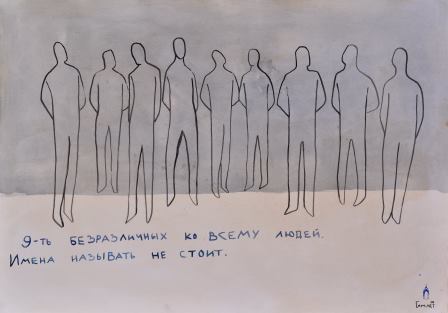 9-ть БЕЗРАЗЛИЧНЫХ КО ВСЕМУ ЛЮДЕЙ.
ИМЕНА НАЗЫВАТЬ НЕ СТОИТ.
ГАМЛЕТ